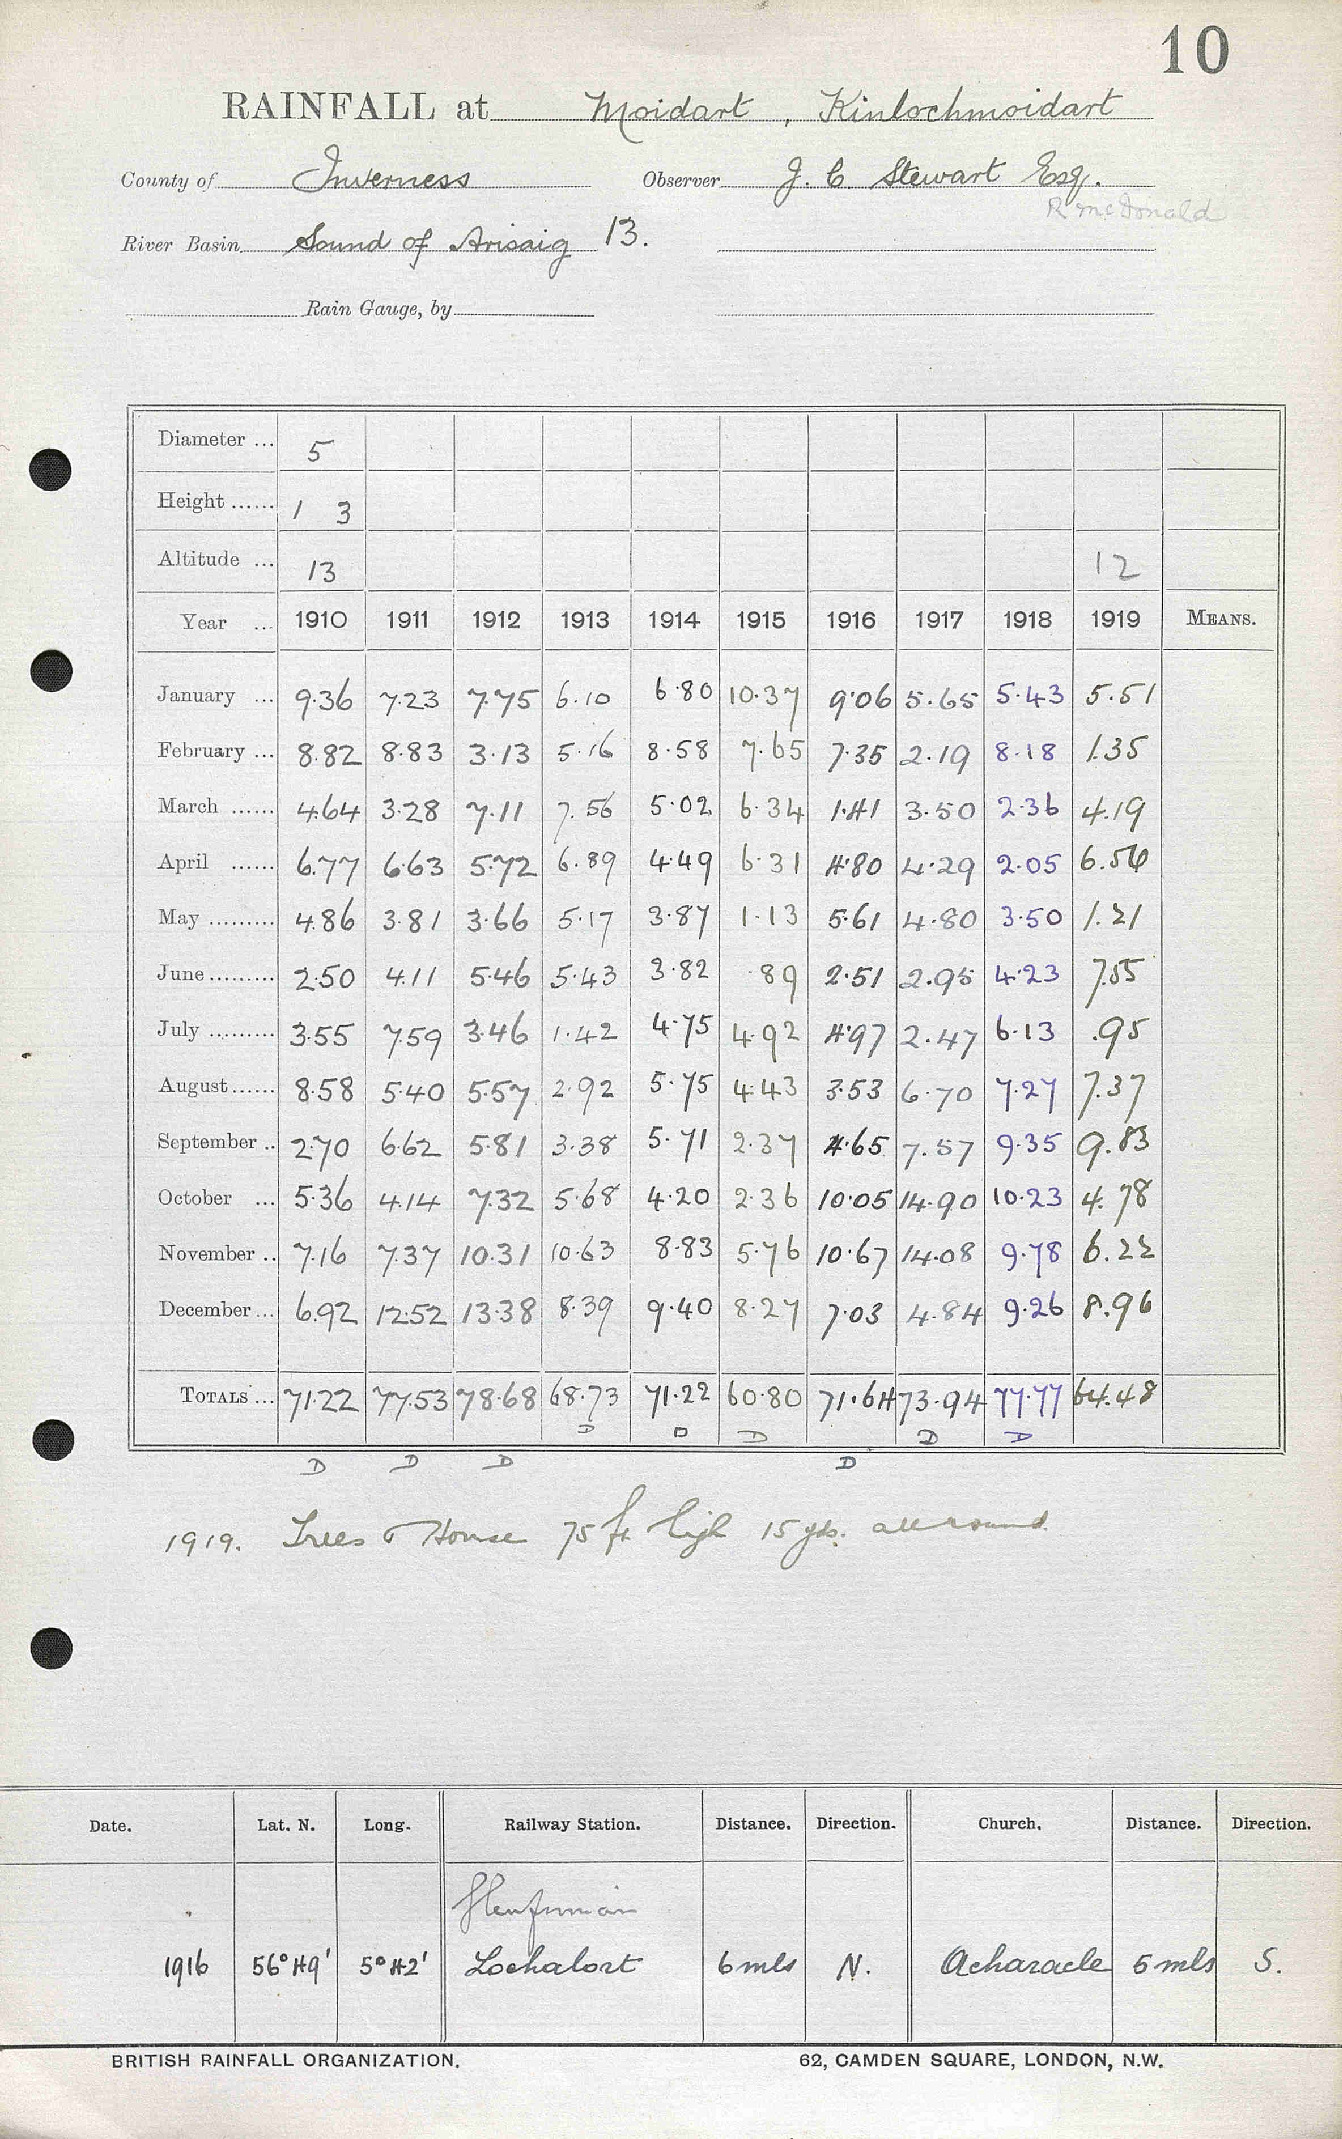 10
RAINFALL at Moidart, Kinlochmoidart
County of Inverness Observer J. C. Stewart Esq.
R McDonald
River Basin Sound of Arisaig 13.
Rain Gauge, by
Diameter ... 5
Height ...... 1 3
Altitude ... 13 12
Year ... 1910 1911 1912 1913 1914 1915 1916 1917 1918 1919 MEANS.
January ... 9.36 7.23 7.75 6.10 6.80 10.37 9.06 5.65 5.43 5.51
February ... 8.82 8.83 3.13 5.16 8.58 7.65 7.35 2.19 8.18 1.35
March ...... 4.64 3.28 7.11 7.56 5.02 6.34 1.41 3.50 2.36 4.19
April ...... 6.77 6.63 5.72 6.89 4.49 6.31 4.80 4.29 2.05 6.56
May ......... 4.86 3.81 3.66 5.17 3.87 1.13 5.61 4.80 3.50 1.21
June ......... 2.50 4.11 5.46 5.43 3.82 .89 2.51 2.95 4.23 7.55
July ......... 3.55 7.59 3.46 1.42 4.75 4.92 4.97 2.47 6.13 .95
August ...... 8.58 5.40 5.57 2.92 5.75 4.43 3.53 6.70 7.27 7.37
September .. 2.70 6.62 5.81 3.38 5.71 2.37 4.65 7.57 9.35 9.83
October ... 5.36 4.14 7.32 5.68 4.20 2.36 10.05 14.90 10.23 4.78
November .. 7.16 7.37 10.31 10.63 8.83 5.76 10.67 14.08 9.78 6.22
December ... 6.92 12.52 13.38 8.39 9.40 8.27 7.03 4.84 9.26 8.96
TOTALS ... 71.22 77.53 78.68 68.73 71.22 60.80 71.64 73.94 77.77 64.48
D D D D D
D D D D
1919. Trees & House 75 ft high 15 yds. all round
Date. Lat. N. Long. Railway Station. Distance. Direction. Church. Distance. Direction.
Glenfinnan
1916 56° 49' 5° 42' Lochalort 6 mls N. Acharacle 5 mls S.
BRITISH RAINFALL ORGANIZATION. 62, CAMDEN SQUARE, LONDON, N.W.